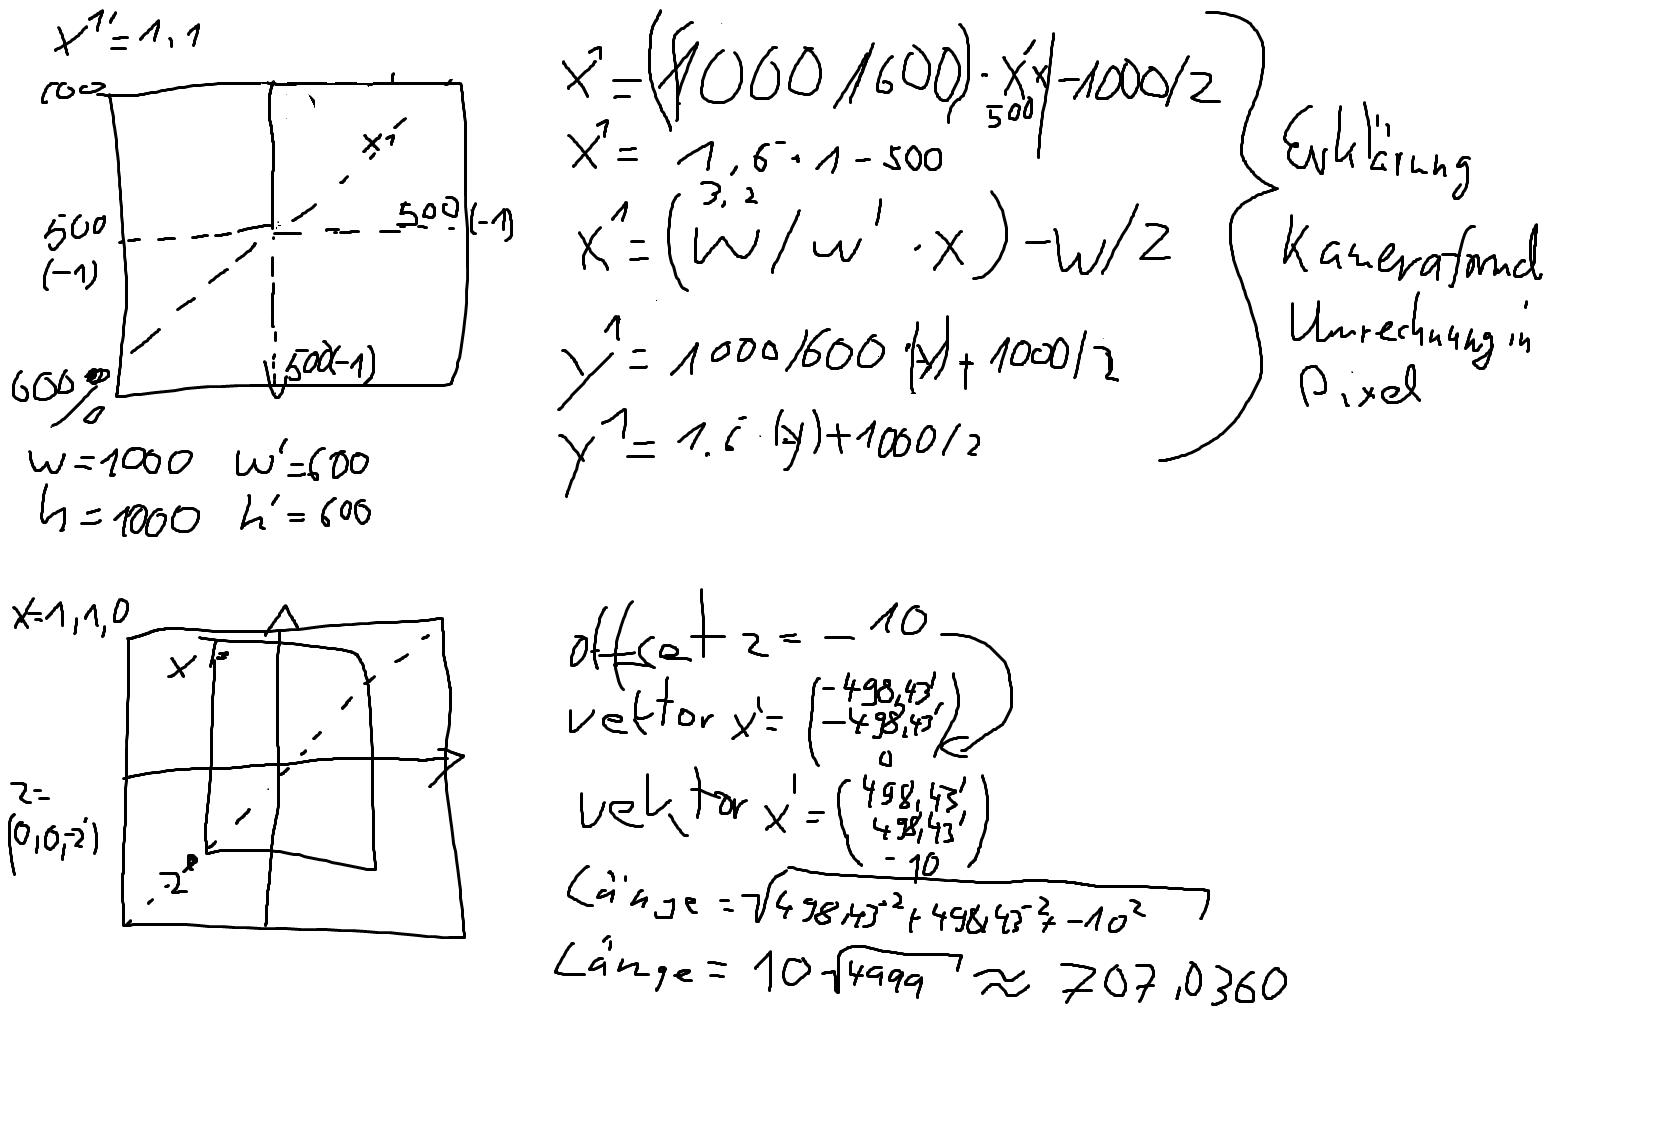 x' = 1,1
1000
x'
500
(-1)
500 (-1)
500(-1)
600
0
w = 1000 w' = 600
h = 1000 h' = 600
x' = (1000/600) · x - 1000/2
500
x' = 1,6 · 1 - 500
3,2
x' = (w/w' · x) - w/2
y' = 1000/600 · (y) + 1000/2
y' = 1.6 · (y) + 1000/2
Erklärung
Kamerafornd
Umrechnung in
Pixel
x=1,1,0
x
z=
(0,0,-2)
-2
offset z = -10
vektor x' = (-498,43' -498,43' 0)
vektor x' = (498,43' 498,43' -10)
Länge = √498,43² + 498,43² + -10²
Länge = 10√4999 ≈ 707,0360